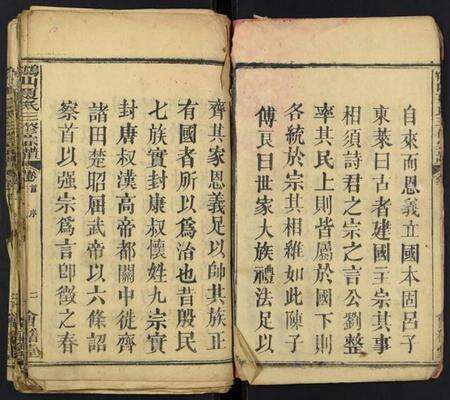 自來而恩義立國本固呂子
東萊曰古者建國立宗其事
相須詩君之宗之言公劉整
率其民上則皆屬於國下則
各統於宗其相維如此陳子
傅良曰世家大族禮法足以
齊其家恩義足以帥其族正
有國者所以爲治也昔殷民
七族實封康叔懷姓九宗實
封唐叔漢高帝都關中徙齊
諸田楚昭屈武帝以六條詔
察首以强宗爲言卽徵之春
三修宗譜
卷首
序
二